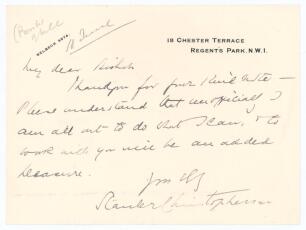 WELBECK 5974.
18 CHESTER TERRACE
REGENT'S PARK. N.W.1.
My dear Bishop
Thank you for your kind note —
Please understand that unofficially I
am all out to do what I can, & to
work with you will be an added
pleasure.
Stanley Christopherson